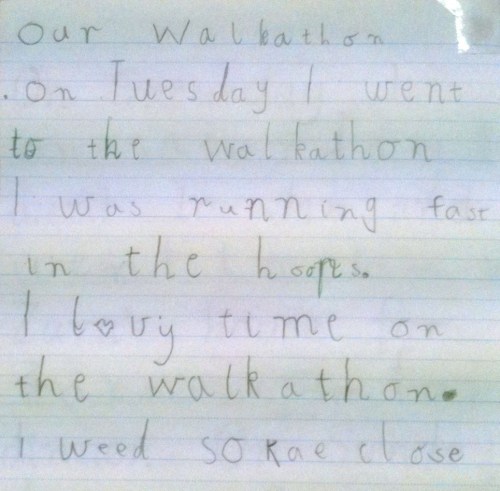 Our Walkathon
.on Tuesday I went
to the walkathon
I was running fast
in the hoops.
I lovy time on
the walkathon.
I weed so kae close